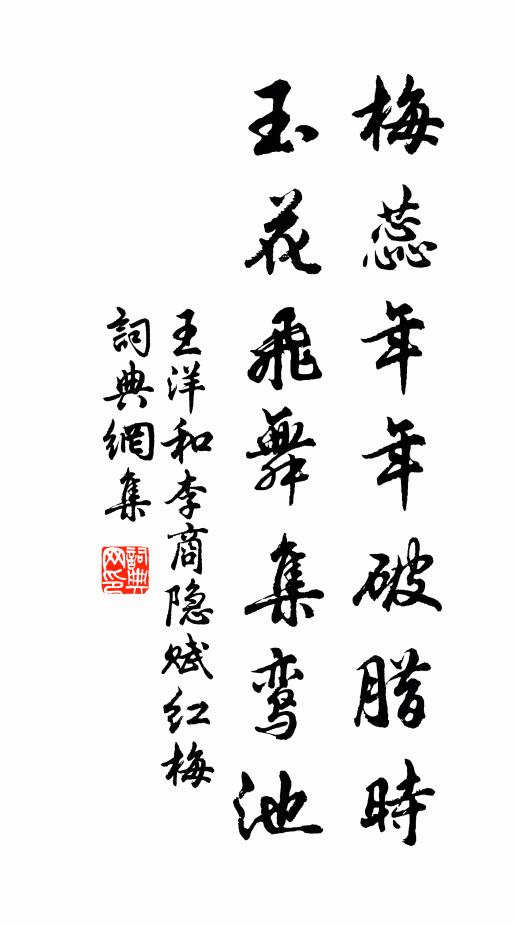 梅蕊年年破腊時
玉花飛舞集鸾池
王洋和李商隐赋红梅
詞典網集
詞典网印